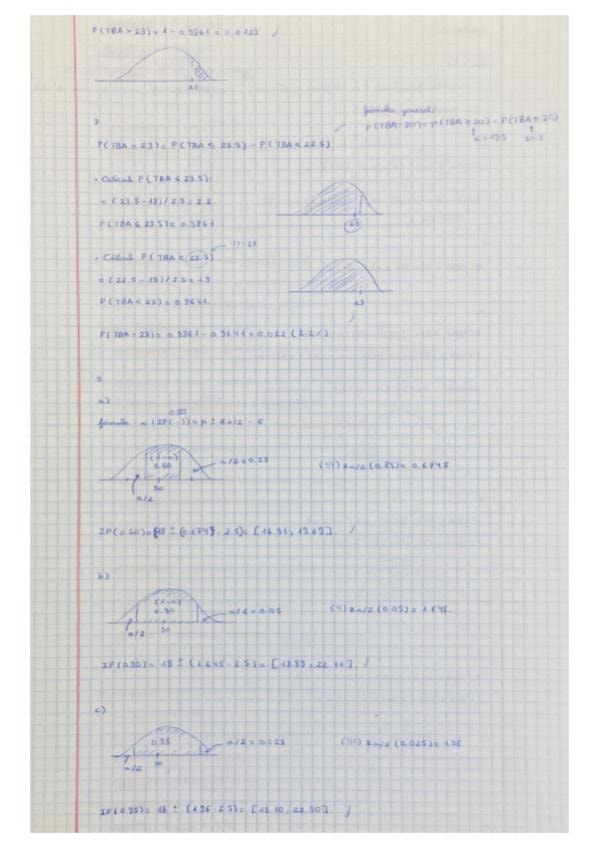 P(TBA > 23) = 1 - 0.9861 = 0.0123 /
23
8.
fórmula general:
P(TBA=20) = P(TBA ≥ 20) - P(TBA ≤ 20)
20.5
P(TBA = 23) = P(TBA ≤ 23.5) - P(TBA ≤ 22.5)
• Càlcul P(TBA ≤ 23.5):
= (23.5 - 18) / 2.5 = 2.2
P(TBA ≤ 23.5) = 0.9861
23
• Càlcul P(TBA < 22.5)
= (22.5 - 18) / 2.5 = 1.9
P(TBA < 23) = 0.9641.
23
P(TBA = 23) = 0.9861 - 0.9641 = 0.022 (2.2%)
9.
a)
0.50
(1-α)
0.50
α/2 = 0.25
α/2
50
zα/2 (0.25) = 0.6745
IP(0.50) = 18 ± (0.6745 · 2.5) = [16.31, 19.69]. /
b)
(1-α)
0.90
α/2 = 0.05
α/2
zα/2 (0.05) = 1.645.
IP(0.90) = 18 ± (1.645 · 2.5) = [13.89, 22.11]. /
c)
0.95
α/2 = 0.025
α/2
zα/2 (0.025) = 1.96
IP(0.95) = 18 ± (1.96 · 2.5) = [13.10, 22.90]. /